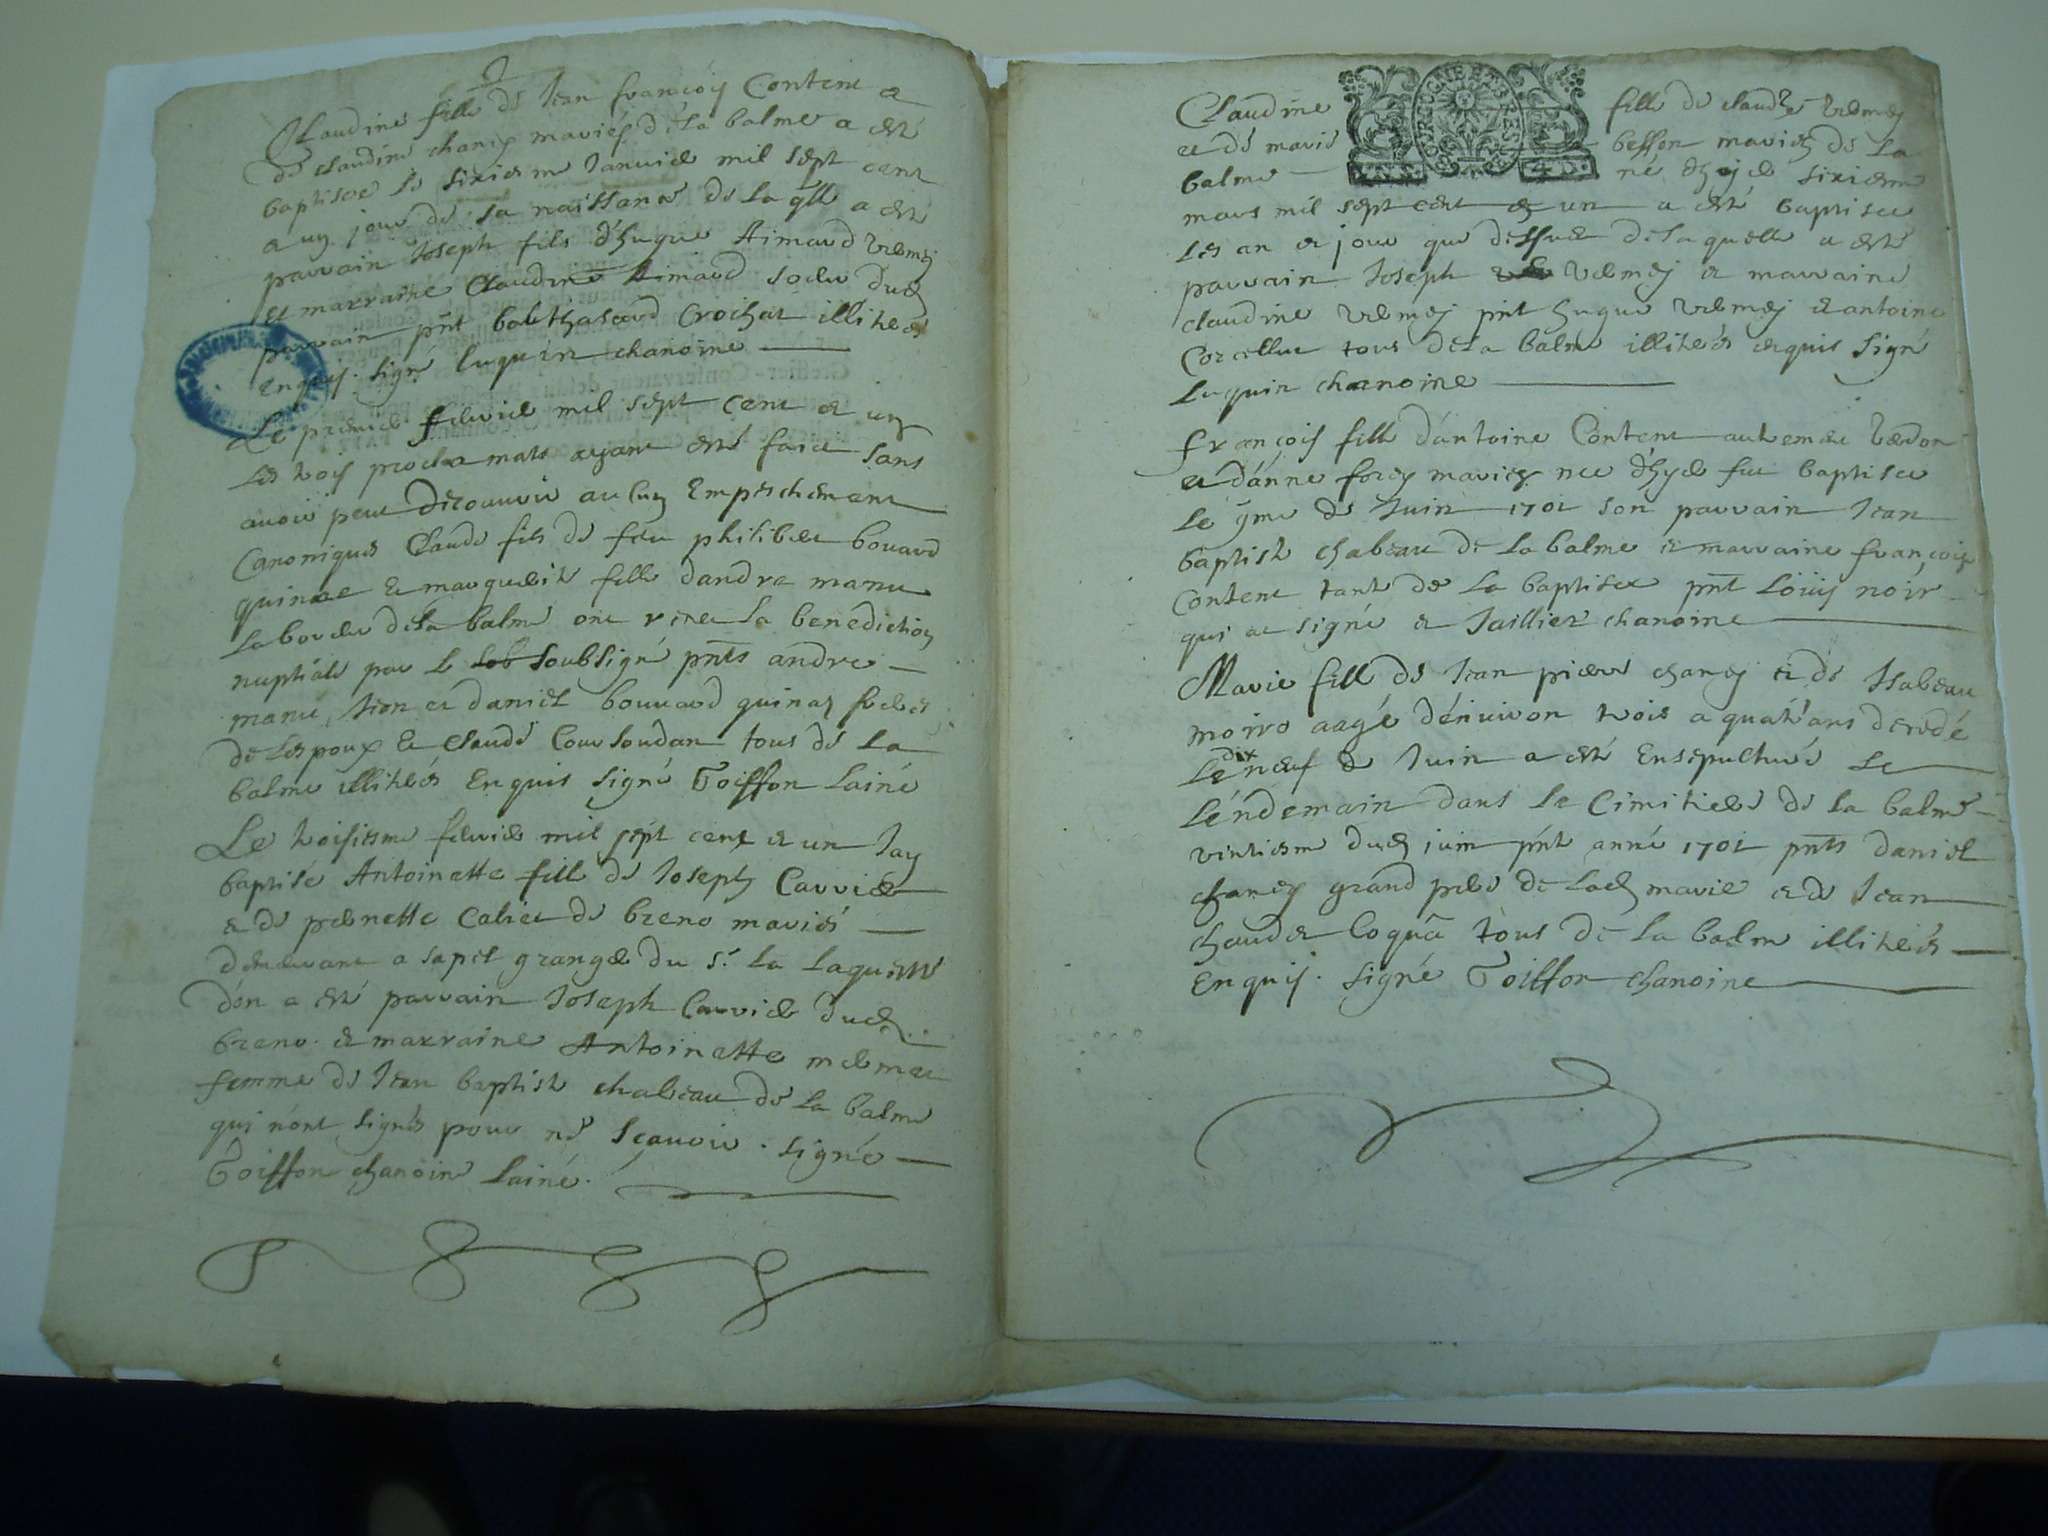 Claudine fille de Jean françois Content et
de Claudine chaney mariés de la balme a esté
baptisee le sixiesme Janvier mil sept cent
et un jour de sa naissance de la qlle a esté
parrain Joseph fils d'hugue Aimard vuemej
et marraine Claudine Aimard soeur dud
parrain pnt balthasard Crochat illiteres
enquis. signé luquin chanoine
Le premier febvrier mil sept cent et un
les trois proclamats ayant esté faict sans
avoir peut decouvrir aucun Empeschement
Canoniques Claude fils de feu philibert bovard
quinae et marguerite fille dandre manu
laboureur de la balme ont receu la benediction
nuptiale par le soubsigné pnts andre
manu, Jean et daniel bouvard quinaz freres
de lespoux et Claude Coursoudan tous de la
balme illiteres Enquis signé Goiffon Lainé
Le troisiesme febvrier mil sept cent et un Jay
baptisé Antoinette fille de Joseph Carrier
et de pernette Caliet de breno mariés
demeurant a sapel grange du Sr. La laquelle
don a esté parrain Joseph Carrier dud
breno. et marraine Antoinette mermet
femme de Jean baptiste chabeau de la balme
qui n'ont signés pour ne sçavoir. signé
Goiffon chanoine Lainé.
Claudine fille de claude vuemej
et de marie besson mariés de la
balme né hyer sixiesme
mars mil sept cent et un a esté baptisee
les an et jour que dessus de laquelle a esté
parrain Joseph vuemej et marraine
claudine vuemej pnt hugue vuemej et antoine
Corcellut tous de la balme illiteres enquis signé
luquin chanoine
françois fille d'antoine Content autrement
et d'anne forey mariez nee d'hyer fut baptisee
le me de Juin 1701 son parrain Jean
baptiste chabeau de la balme et marraine françoise
Content tante de la baptisee pnt Louis noir
qui a signé et Jaillier chanoine
Marie fille de Jean pierre chaney et de Isabeau
moiro aagé d'environ trois a quatr'ans decedé
Le dix neuf de Juin a esté Ensepulturé Le
Lendemain dans le Cimitiere de la balme
vintiesme dud juin pnt anné 1701 pnts daniel
chaney grand pere de lad marie et de Jean
chaudet tous de la balme illiteres
Enquis. signé Goiffon chanoine